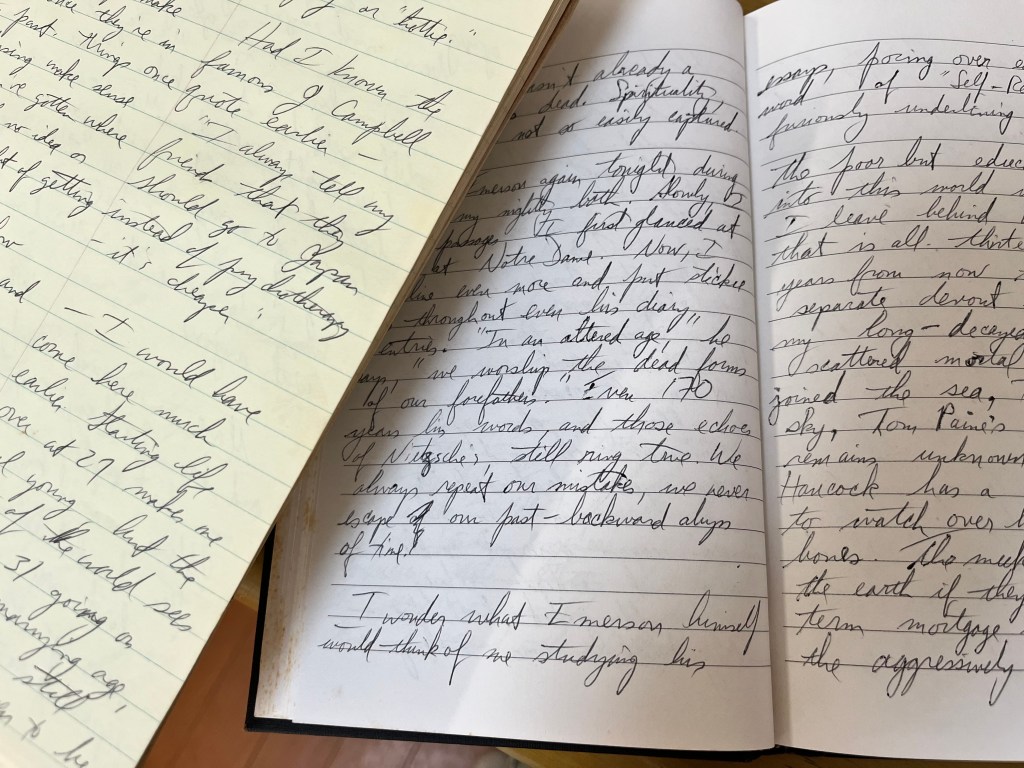 or "bothe."
make
once they're in
past. things once
using make sense
gotten where
no idea
of getting
Had I known the
famous J Campbell
quote earlier –
"I always tell my
friends that they
should go to Japan
instead of psychotherapy
– it's cheaper"
and – I would have
come here much
earlier. Starting life
over at 27 makes me
young but the
of the world sees
31 going on
marrying age,
still
to be
isn't already a
dead. Spirituality
not as easily captured.
Emerson again tonight during
my nightly bath. Slowly
passages I first glanced at
at Notre Dame. Now, I
even more and put stickies
throughout even his diary
entries. "In an altered age," he
says, "we worship the dead forms
of our forefathers." Even 170
years his words, and those echoes
of Nietzsche's, still ring true. We
always repeat our mistakes, we never
escape our past – backward
of time.
I wonder what Emerson himself
would think of me studying his
essays, poring over
word of "Self-Re
furiously underlining
the poor but educ
into this world
I leave behind
that is all. thirte
years from now
separate devout
my long-decayed
scattered, mortal
joined the sea,
sky, Tom Paine's
remains unknown
Hancock has a
to watch over
bones. The
the earth if they
term mortgage
the aggressively